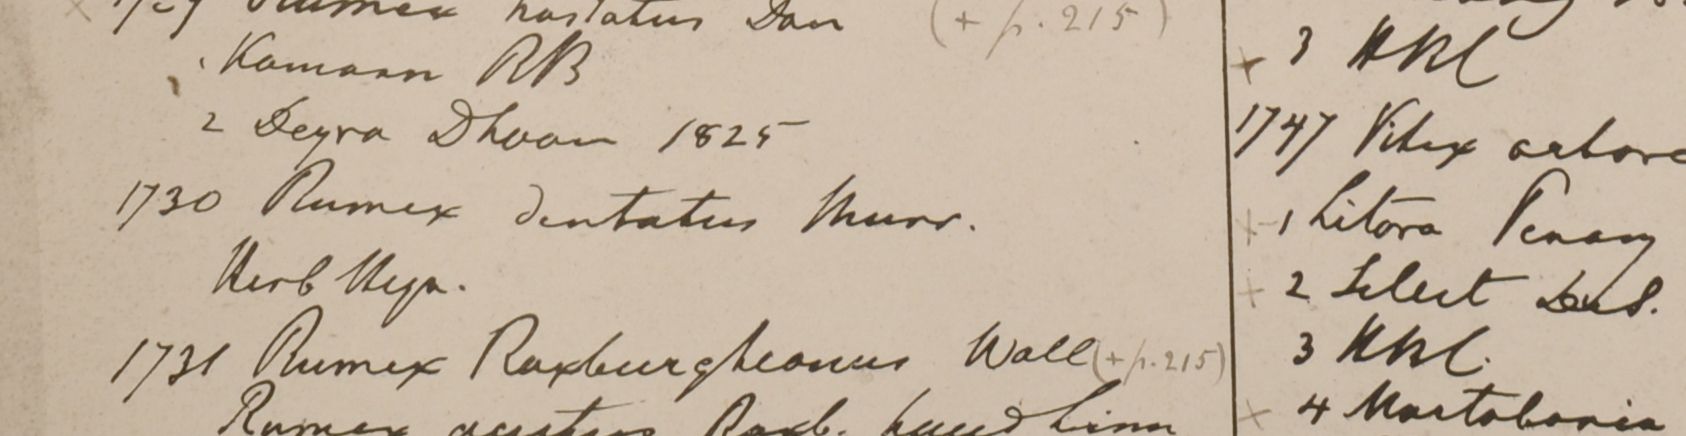 1729 Rumex hastatus Don (+ p. 215)
Kamaon RB
2 Deyra Dhoon 1825
1730 Rumex dentatus Murr.
Herb Heyn.
1731 Rumex Roxburgheanus Wall (+ p. 215)
Rumex acutus Roxb. haud Linn
3 HBC
1747 Vitex arbore
1 Litora Penang
2 Silhet
3 HBC.
4 Martabania